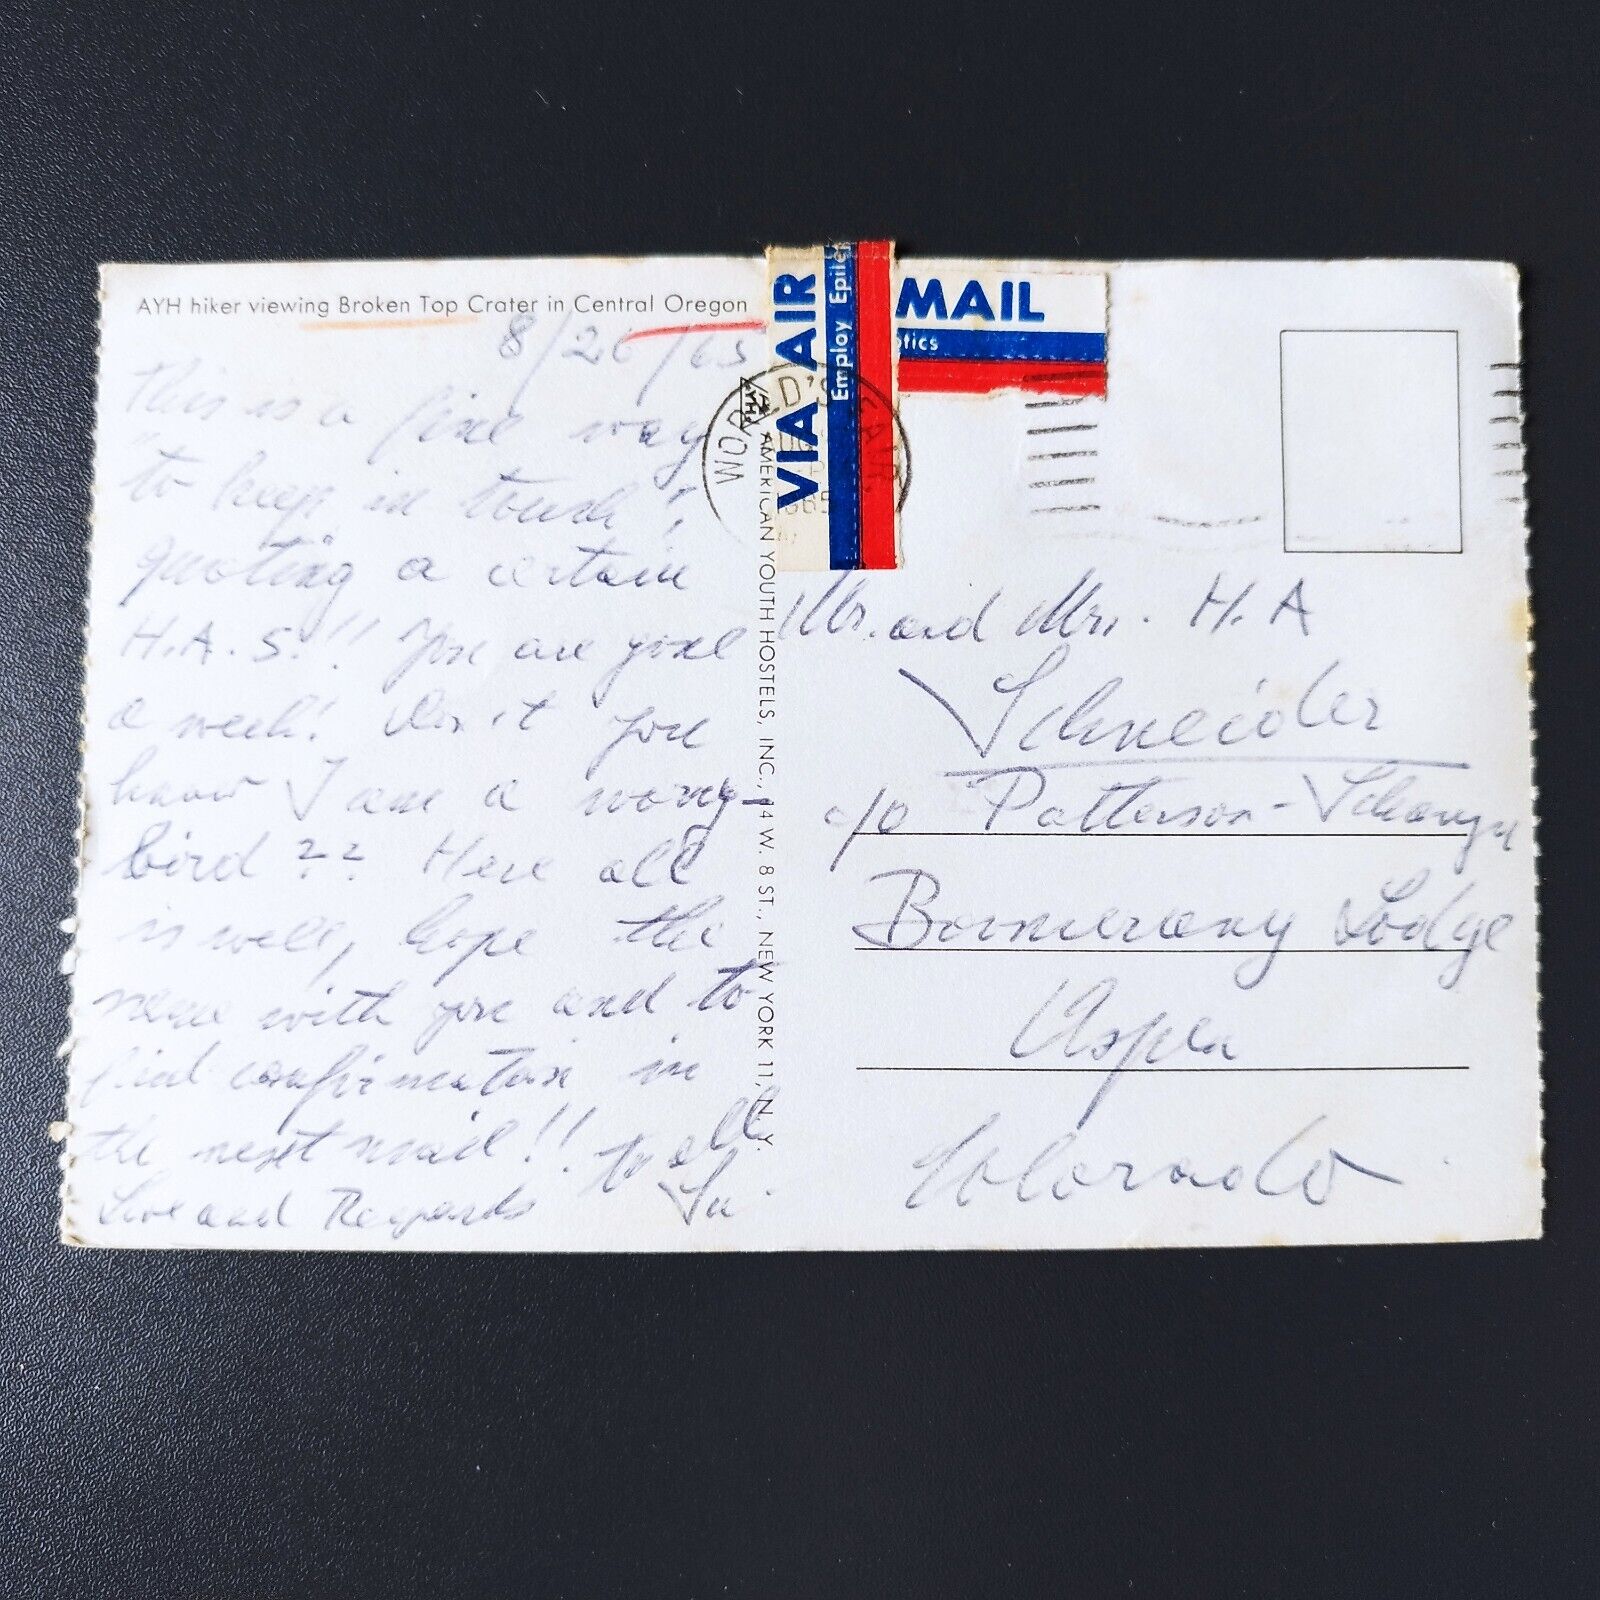 AYH hiker viewing Broken Top Crater in Central Oregon
8/26/65
This is a fine way
to keep in touch!,
quoting a certain
H.A.S.!! You are gone
a week! Don't you
know I am a worry-
bird?? Here all
is well, hope the
same with you and to
find confirmation in
the next mail!! To all
Love and Regards
VIA AIR MAIL
Employ Epileptics
D'S FAIR
1965
AYH
AMERICAN YOUTH HOSTELS, INC., 14 W. 8 ST., NEW YORK 11, N.Y.
Mr. and Mrs. H.A
Schneider
c/o Patterson-
Boomerang Lodge
Aspen
Colorado